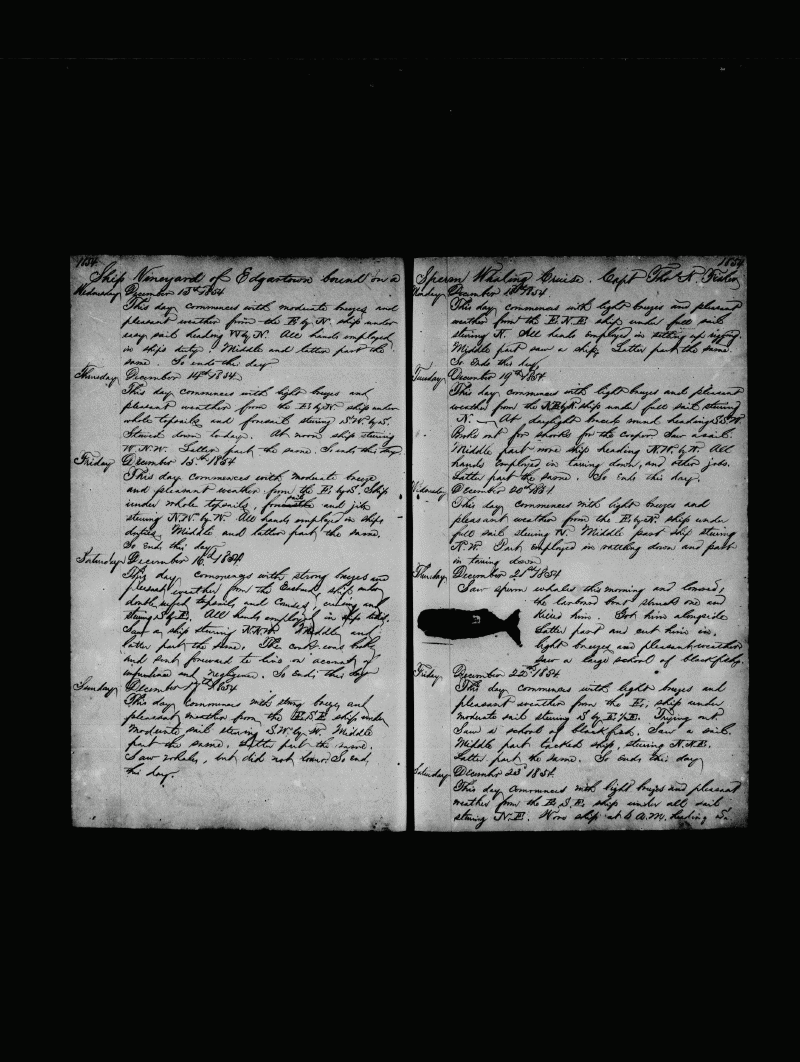 1854.
Ship Vineyard of Edgartown bound on a
Wednesday December 13th 1854
This day commences with moderate breezes and
pleasant weather from the E by N. ship under
easy sail heading by N. All hands employed
in ships duty. Middle and latter part the
same. So ends this day
Thursday December 14th 1854
This day commences with light breezes and
pleasant weather from the E by N. ship under
whole topsails and foresail steering S.W. by S.
Stowed down today. At noon ship steering
W.N.W. Latter part the same. So ends this day
Friday December 15th 1854
This day commences with moderate breeze
and pleasant weather from the E. by S. Ship
under whole topsails, and jib
steering N.W. by W. All hands employed in ships
duties. Middle and latter part the same.
So ends this day
Saturday December 16th 1854
This day commences with strong breezes and
pleasant weather from the Eastward, ship under
double reefed topsails and and
steering S by E. All hands employed in ships
Saw a ship steering N.N.W. Middle and
latter part the same. The cook was
and sent forward to live on account of
and negligence. So ends this day
Sunday December 17th 1854
This day commences with strong breezes and
pleasant weather from the E.S.E. ship under
moderate sail steering S.W. by W. Middle
part the same. Latter part the same.
Saw whales, but did not lower. So ends
this day.
1854
Sperm Whaling Cruise. Capt Thos N.
Monday December 18th 1854.
This day commences with light breezes and pleasant
weather from the E.N.E. ship under full sail
steering N. All hands employed in setting up rigging
Middle part saw a ship. Latter part the same.
So Ends this day.
Tuesday December 19th 1854
This day commences with light breezes and pleasant
weather from the ship under full sail steering
N. — At daylight heading S.S.W.
Broke out for for the cooper. Saw a sail.
Middle part wore ship heading N.W. by N. All
hands employed in tarring down, and other jobs.
Latter part the same. So Ends this day.
Wednesday December 20th 1854
This day commences with light breezes and
pleasant weather from the E. by N. ship under
full sail steering N. Middle part ship steering
N.W. Part employed in rattling down and part
in tarring down
Thursday December 21st 1854
Saw sperm whales this morning and lowered,
the larboard boat struck one and
killed him. Got him alongside
Latter part and cut him in.
light breezes and pleasant weather
saw a large school of blackfish.
Friday December 22nd 1854
This day commences with light breezes and
pleasant weather from the E. ship under
moderate sail steering S by E. Trying out
Saw a school of blackfish. Saw a sail.
Middle part tacked ship, steering N.N.E.
Latter part the same. So ends this day
Saturday December 23d 1854.
This day commences with light breezes and pleasant
weather from the E.S.E. ship under all sail
steering N.E. Wore ship at 6 A.M. heading S.